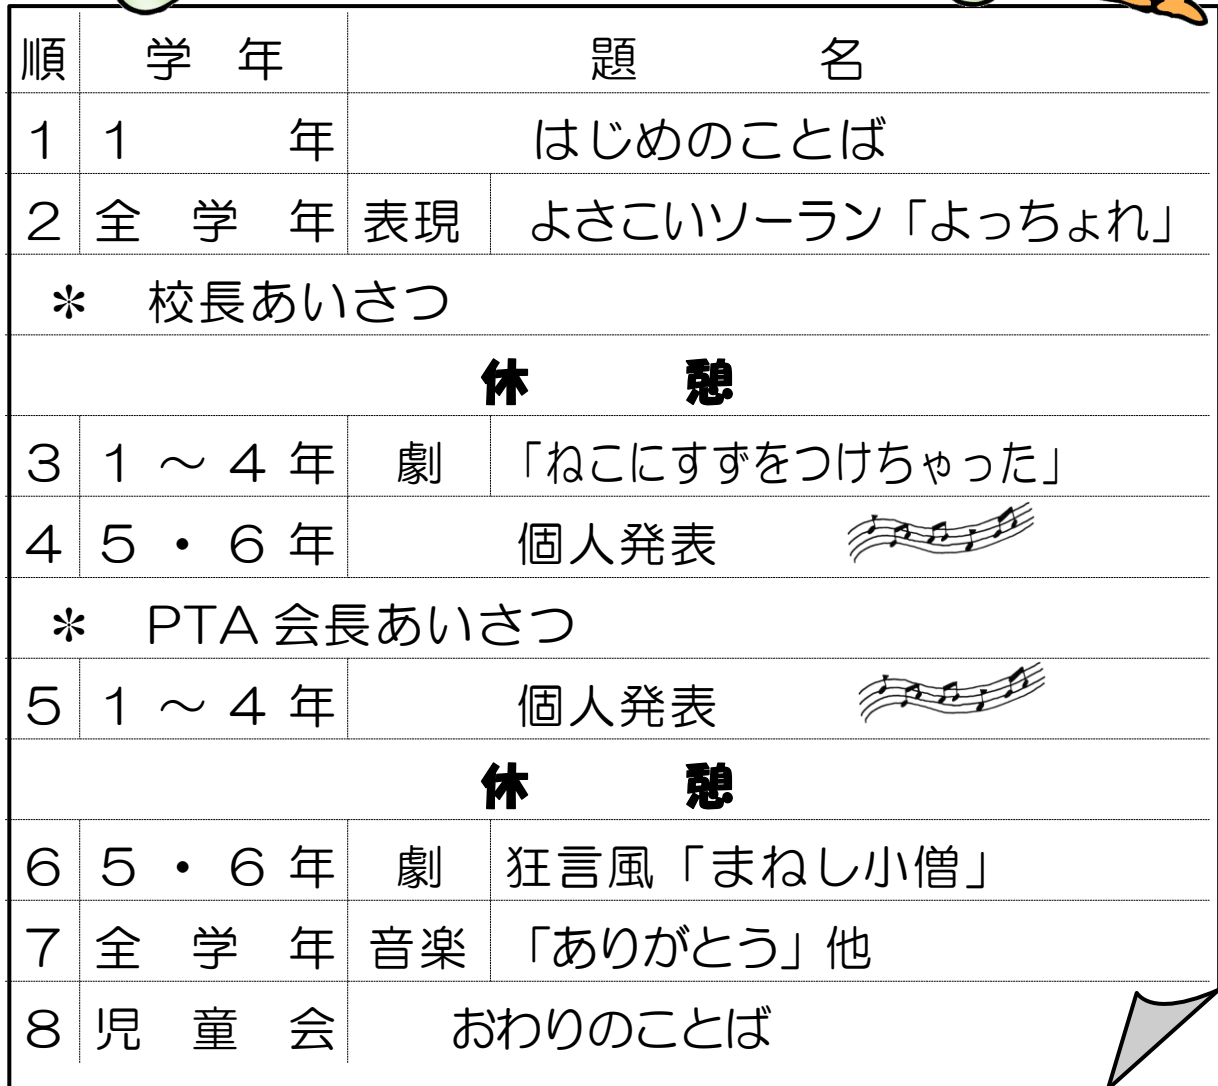 順 学年 題名
1 1年 はじめのことば
2 全学年 表現 よさこいソーラン「よっちょれ」
＊ 校長あいさつ
休憩
3 1～4年 劇 「ねこにすずをつけちゃった」
4 5・6年 個人発表
＊ PTA会長あいさつ
5 1～4年 個人発表
休憩
6 5・6年 劇 狂言風「まねし小僧」
7 全学年 音楽 「ありがとう」他
8 児童会 おわりのことば